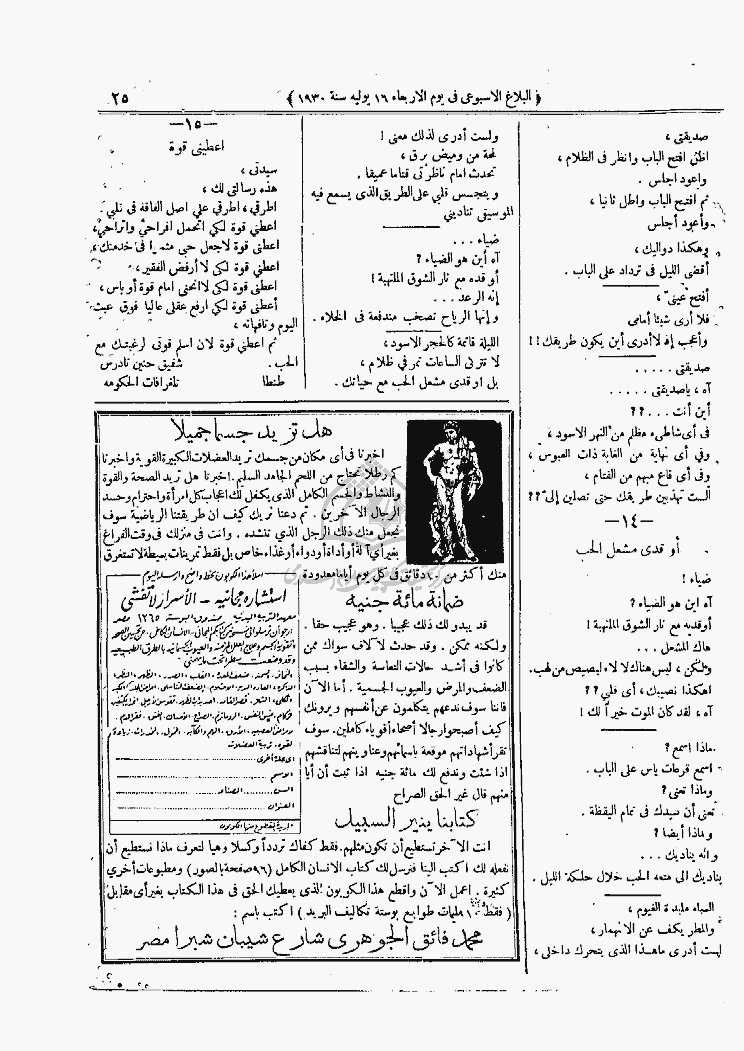 ﴿ البلاغ الاسبوعى فى يوم الاربعاء ١٦ يوليه سنة ١٩٣٠ ﴾
٢٥
صديقتى ،
اظل افتح الباب وانظر فى الظلام ،
واعود اجلس .
ثم افتح الباب واطل ثانيا ،
وأعود أجلس
وهكذا دواليك ،
أقضى الليل فى ترداد على الباب .
أفتح عينى ،
فلا أرى شيئا أمامى
وأعجب إذ لا أدرى أين يكون طريقك ! !
صديقتى . . . . .
آه ، ياصديقتى . . . . .
أين أنت . . . ؟ ؟
فى أى شاطىء مظلم من النهر الاسود ،
وفي أى نهاية من الغابة ذات العبوس ،
وفى أى قاع مبهم من القتام ،
ألست تهذبين طريقك حتى تصلين إلىّ ؟ ؟
— ١٤ —
أوقدى مشعل الحب
ضياء !
آه اين هو الضياء ؟
أوقديه مع نار الشوق الملتهبة !
هاك المشعل ...
ولكن ، ليس هناك لألاء لبصيص من لهب .
اهكذا نصيبك ، أى قلبى ؟ ؟
آه ، لقد كان الموت خيراً لك !
ماذا اسمع ؟
اسمع قرعات يأس على الباب .
وماذا تعنى ؟
تعنى أن سيدك فى تمام اليقظة .
وماذا أيضا ؟
وانه يناديك ...
يناديك الى متعة الحب خلال حلكة الليل .
السماء ملبدة الغيوم ،
والمطر يكف عن الانهمار ،
لست أدرى ماهذا الذى يتحرك داخلى ،
ولست أدرى لذلك معنى !
لمحة من وميض برق ،
تحدث امام ناظرىّ قتاما عميقا .
ويتجسس قلبى على الطريق الذى يسمع فيه
الموسيقى تناديني
ضياء ...
آه أين هو الضياء ؟
أوقده مع نار الشوق الملتهبة !
إنه الرعد ...
وإنها الرياح تصخب مندفعة فى الخلاء .
الليلة قاتمة كالحجر الاسود ،
لا تترى الساعات تمر فى ظلام ،
بل اوقدى مشعل الحب مع حياتك .
— ١٥ —
اعطينى قوة
سيدتى ،
هذه رسالتى لك ،
اطرقي ، اطرقي علي اصل الفاقة فى قلبي
اعطنى قوة لكى اتحمل افراحىّ واتراحىّ ،
اعطنى قوة لاجعل حبى مثمرا فى خدمتك ،
اعطنى قوة لكى لا أرفض الفقير ،
اعطنى قوة لكى لا انحنى امام قوة أو باس ،
أعطنى قوة لكى ارفع عقلى عاليا فوق عبث
اليوم وتافهاته ،
ثم اعطنى قوة لان اسلم قوتى لرغبتك مع
الحب .
شفيق حنين تادرس
طنطا
تلغرافات الحكومه
هل تريد جسما جميلا
اخبرنا فى أى مكان من جسمك تريد العضلات الكبيرة القوية واخبرنا
كم رطلا تحتاج من اللحم الجامد السليم . اخبرنا هل تريد الصحة والقوة
والنشاط والجسم الكامل الذى يكفل لك اعجاب كل امرأة واحترام وحسد
الرجال الآخرين . ثم دعنا نريك كيف ان طريقتنا الرياضية سوف
تجعل منك ذلك الرجل الذى تنشده . وانت فى منزلك فى وقت الفراغ
بغير أى آلة أو أداة أو دواء أو غذاء خاص بل فقط تمرينات بسيطة لا تستغرق
منك أكثر من ١٠ دقائق فى كل يوم أياما معدودة
ضمانة مائة جنيه
قد يبدو لك ذلك عجيبا . وهو عجيب حقا .
ولكنه ممكن . وقد حدث لآلاف سواك ممن
كانوا فى أشد حالات التعاسة والشقاء بسبب
الضعف والمرض والعيوب الجسمية . أما الآن
فاننا سوف ندعهم يتكلمون عن أنفسهم ويرونك
كيف أصبحوا رجالا أصحاء أقوياء كاملين . سوف
تقرأ شهاداتهم موقعة باسمائهم وعناوينهم لتناقشهم
اذا شئت وندفع لك مائة جنيه اذا ثبت أن أيا
منهم قال غير الحق الصراح
املأ هذا الكوبون بخط واضح وارسله اليوم
استشارة مجانيه - الأسرار لا تفشى
معهد التربية البدنيه صندوق البوسته ١٢٦٥ مصر
الاسم
السن
الصناعه
العنوان
كتابنا ينير السبيل
انت الآخر نستطيع أن تكون مثلهم . فقط كفاك تردداً وكسلا وهيا لتعرف ماذا نستطيع أن
نفعله لك اكتب الينا فنرسل لك كتاب الانسان الكامل ( ٩٦ صفحة بالصور ) ومطبوعات أخري
كثيرة . اعمل الآن واقطع هذا الكوبون الذى يعطيك الحق فى هذا الكتاب بغير أى مقابل
( فقط ١٠ مليمات طوابع بوستة تكاليف البريد ) اكتب باسم :
محمد فائق الجوهرى شارع شيبان شبرا مصر